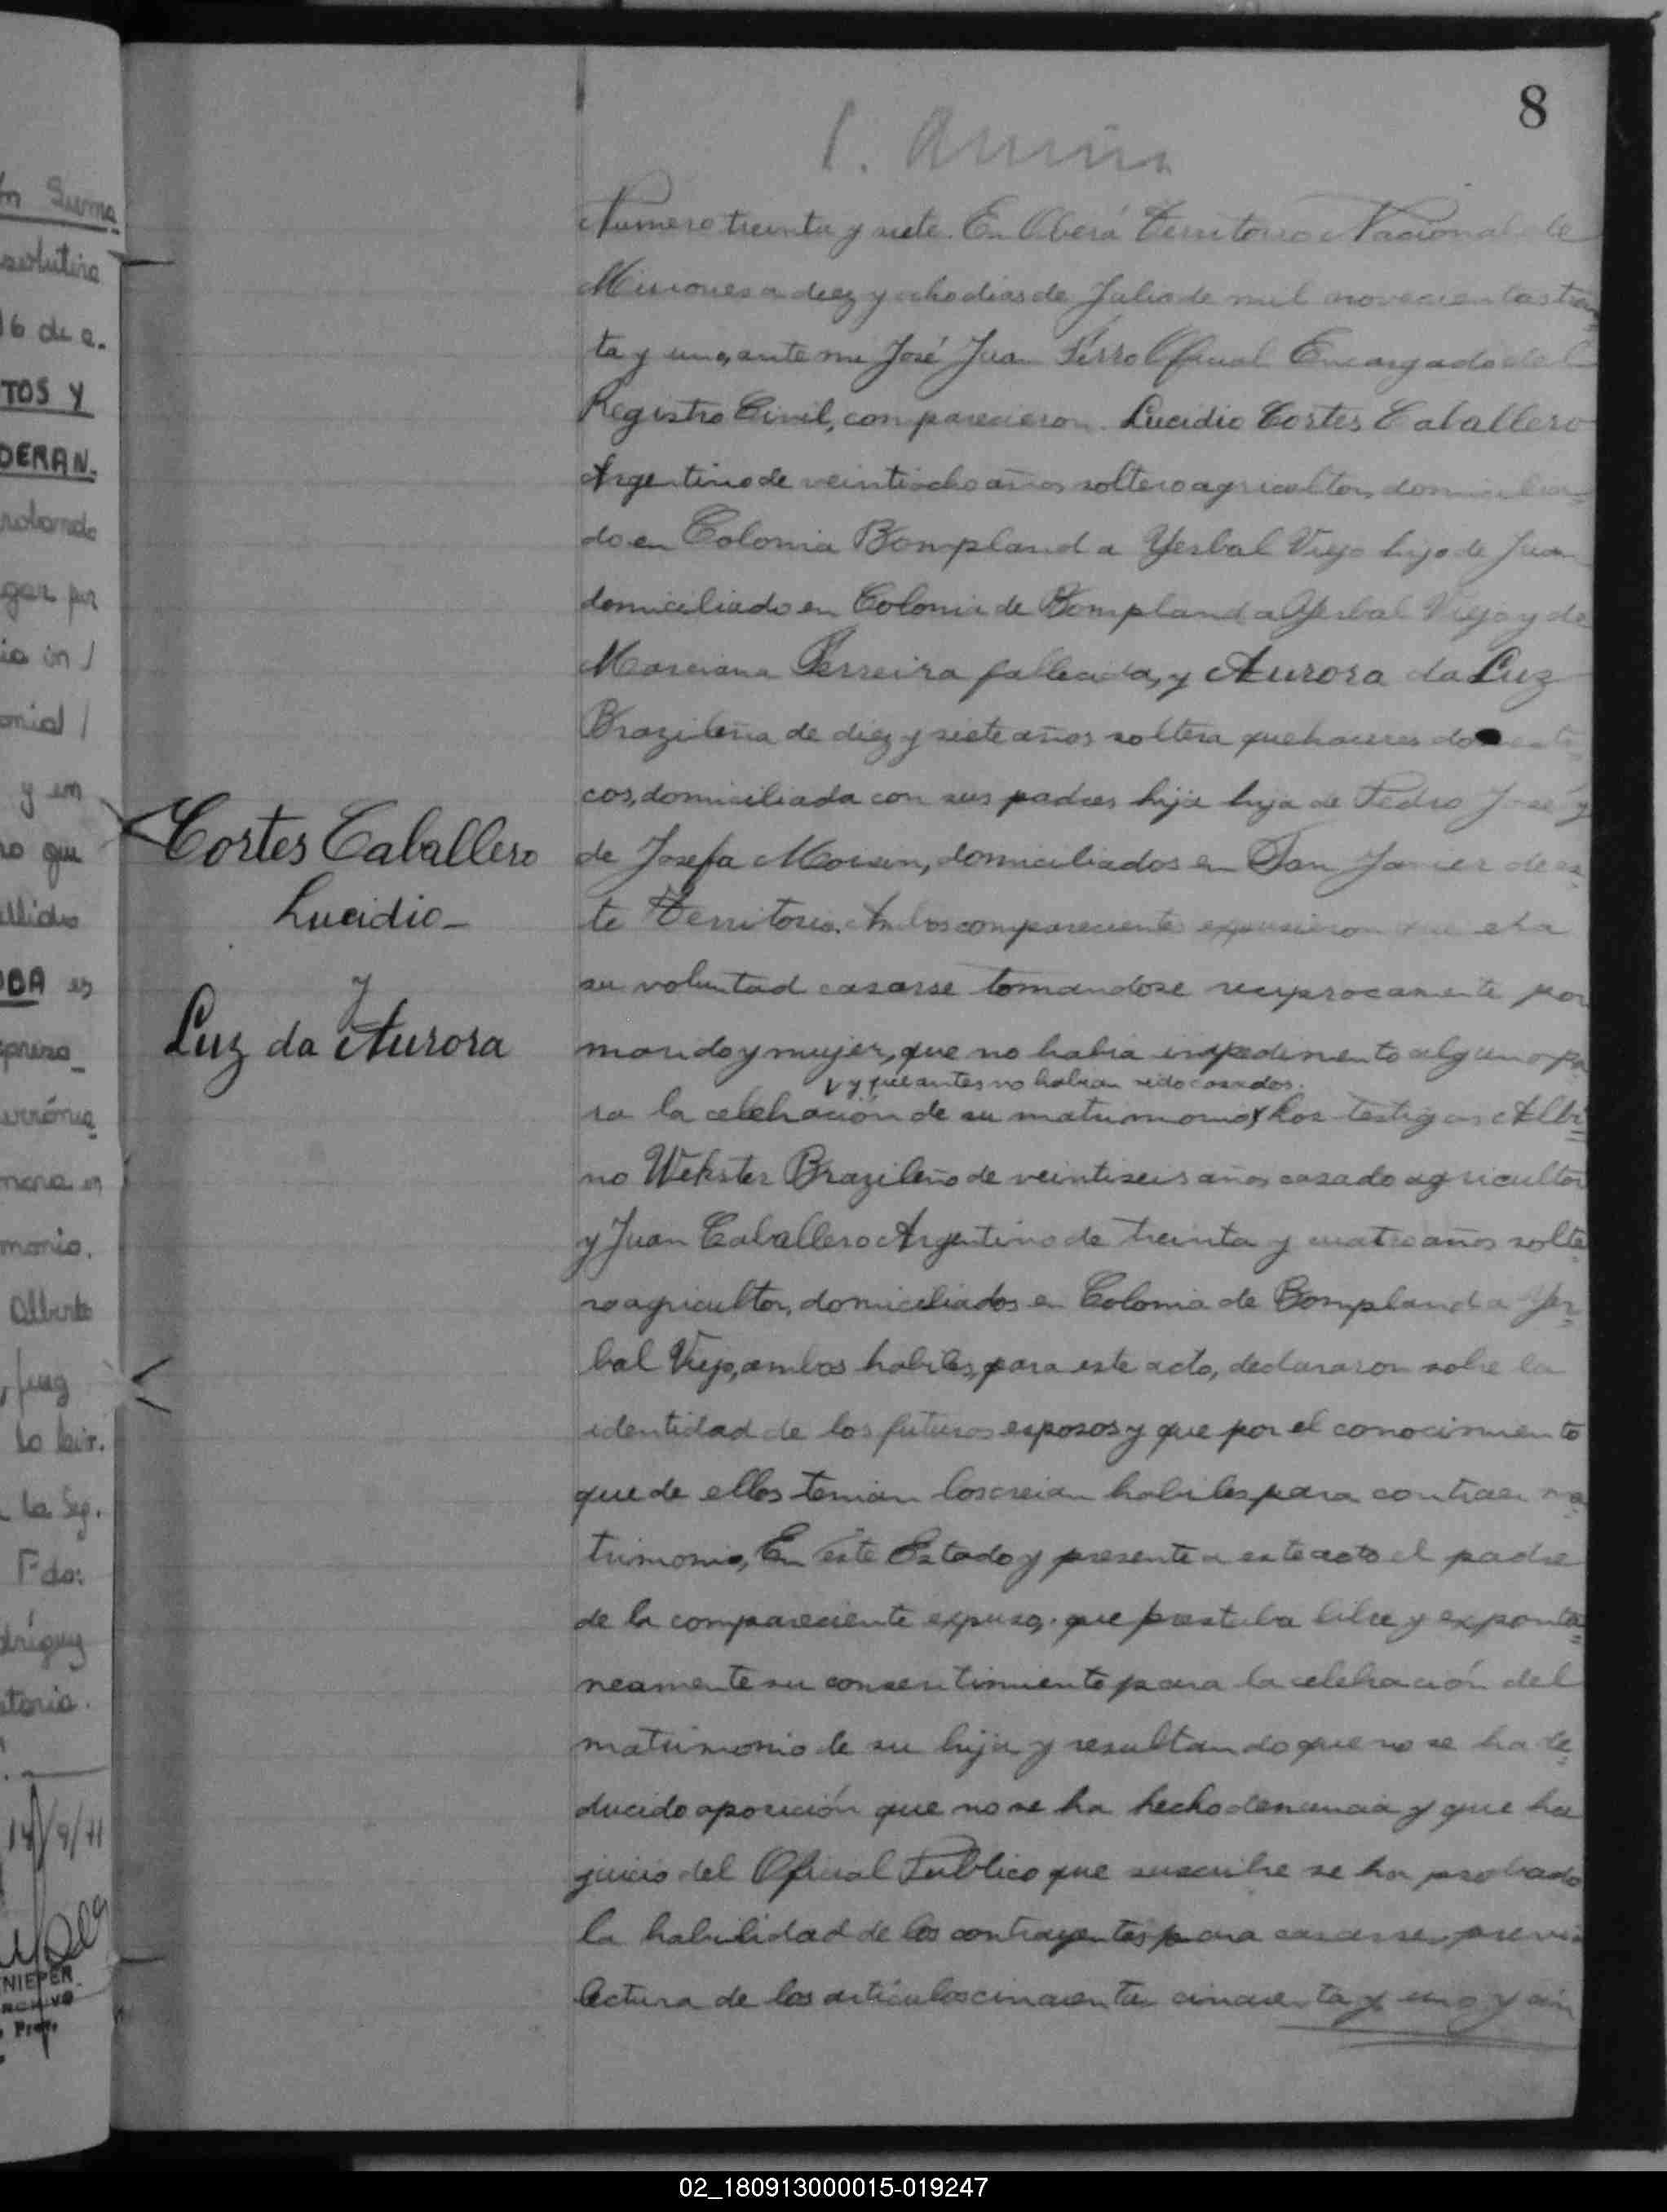 8
Numero treinta y siete. En Oberá Territorio Nacional de
Misiones a diez y ocho dias de Julio de mil novecientos trein
ta y uno, ante mi José Juan Oficial Encargado del
Registro Civil, comparecieron. Lucidio Cortes Caballero
Argentino de veintiocho años soltero agricultor, domicilia=
do en Colonia Bompland a Yerbal Viejo hijo de Juan
domiciliado en Colonia de Bompland a Yerbal Viejo y de
Marciana Ferreira fallecida, y Aurora da Luz
Brazileña de diez y siete años soltera quehaceres domesti
cos, domiciliada con sus padres hija hija de Pedro José y
Cortes Caballero
de Josefa domiciliados en San Javier de es=
Lucidio_
te Territorio. Ambos comparecientes expusieron que era
y
su voluntad casarse tomandose reciprocamente por
Luz da Aurora
marido y mujer, que no habia impedimento alguno pa
y que antes no habian sido casados.
ra la celebración de su matrimonio, Los testigos Albi=
no Wekster Brazileño de veintiseis años casado agricultor
y Juan Caballero Argentino de treinta y cuatro años solte=
ro agricultor, domiciliados en Colonia de Bompland a Yer=
bal Viejo, ambos habiles, para este acto, declararon sobre la
identidad de los futuros esposos y que por el conocimiento
que de ellos tenian los creian habiles para contraer ma=
trimonio, En este Estado y presente a este acto el padre
de la compareciente expuso, que prestaba libre y exponta=
neamente su consentimiento para la celebración del
matrimonio de su hija y resultando que no se ha de=
ducido oposición que no se ha hecho denuncia y que ha
juicio del Oficial Publico que suscribe se ha probado
la habilidad de los contrayentes para casarse, previa
lectura de los articulos cincuenta cincuenta y uno y cin
Suma
16 de a.
TOS Y
DERAN.
gar por
y en
que
es
monio.
Alberto
la Sep.
Fdo:
14/9/71
02_180913000015-019247